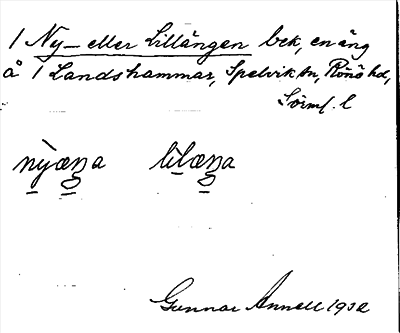 1 Ny- eller Lillängen bek, en äng
å 1 Landshammar, Spelvik sn, Rönö hd,
Sörml. l
nỳæŋa lìlæŋa
Gunnar Annell 1932